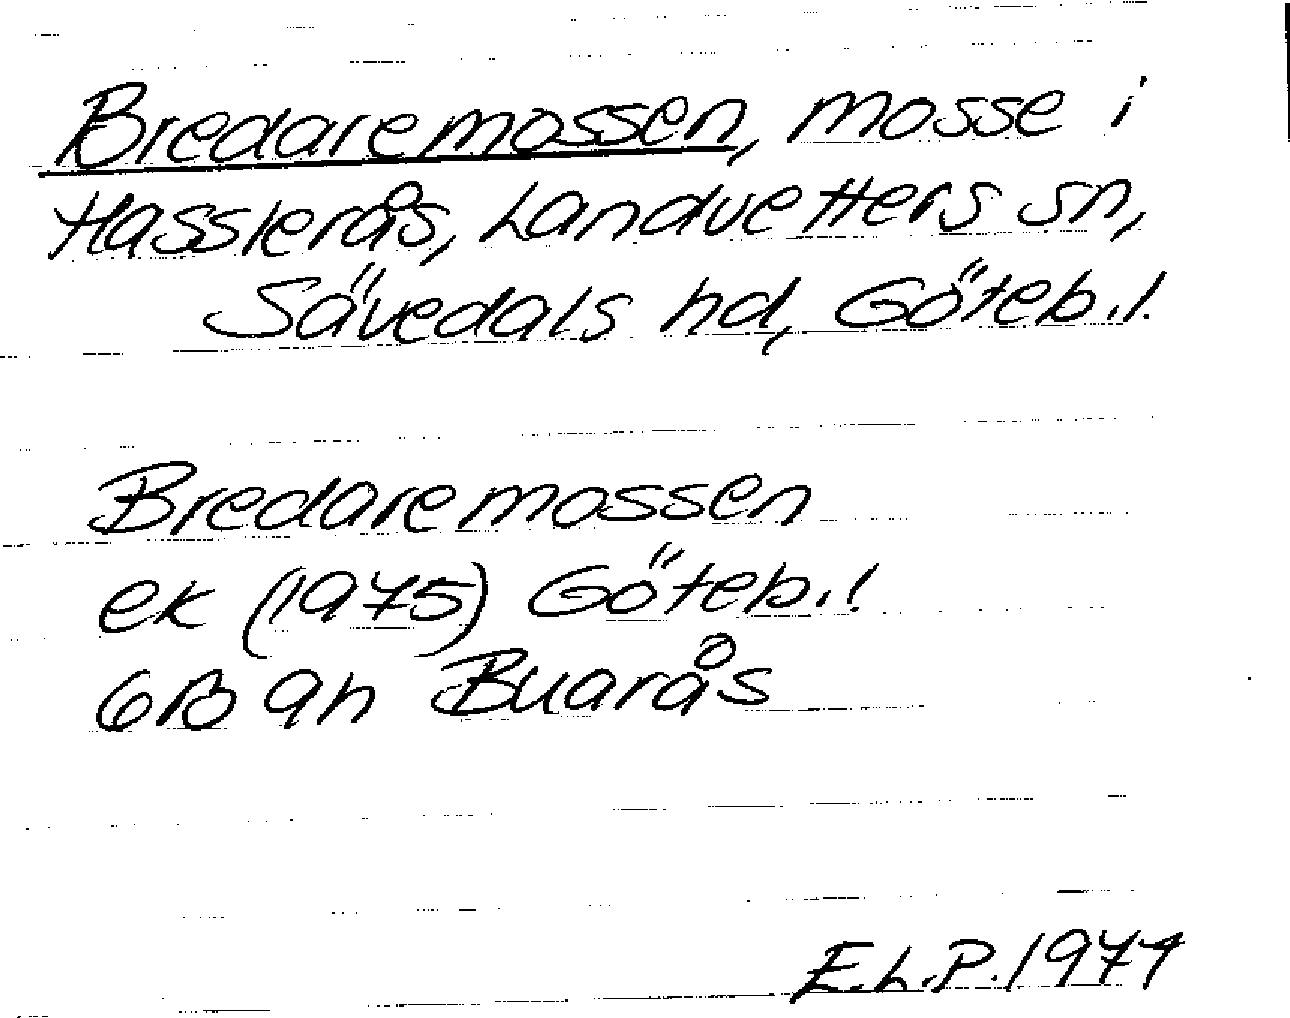 Bredaremossen, mosse i
Hasslerås, Landvetters sn,
Sävedals hd, Göteb.l.
Bredaremossen
ek (1975) Göteb.l
6B 9h Buarås
E.L.P.